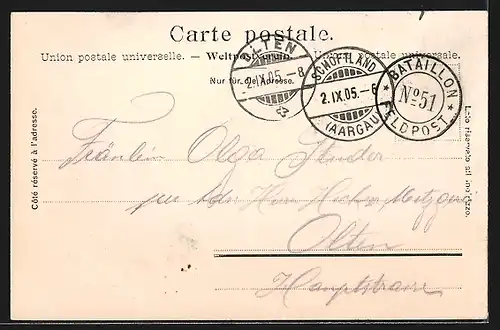 Carte postale.
Union postale universelle. — Weltpostverein. — Unione postale universale.
Nur für die Adresse.
OLTEN
2.IX.05.–8
SCHÖFTLAND
2.IX.05.–6
(AARGAU)
BATAILLON
No 51
FELDPOST
Côté réservé à l'adresse.
Lato riservato all'indirizzo.
Fräulein Olga Studer
per Adr. Herrn Metzger
Olten
Hauptstrasse